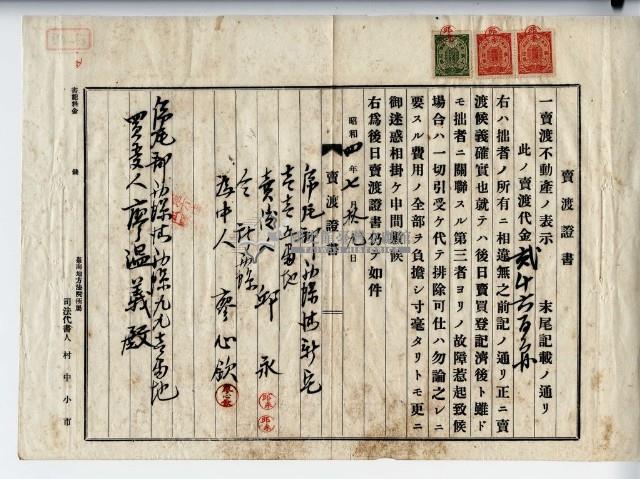 賣渡證書
一賣渡不動産ノ表示 末尾記載ノ通リ
此ノ賣渡代金貳千六百円
右ハ拙者ノ所有ニ相違無之前記ノ通リ正ニ賣
渡候義確實也就テハ後日賣買登記濟後ト雖ド
モ拙者ニ關聯スル第三者ヨリノ故障惹起致候
場合ハ一切引受ケ代テ排除可仕ハ勿論之レニ
要スル費用ノ全部ヲ負擔シ寸毫タリトモ更ニ
御迷惑相掛ケ申間敷候
右爲後日賣渡證書仍テ如件
昭和四年七月拾九日
賣渡證書
虎尾郡
番地
賣渡人 邱永
仝
中人 廖心欽
虎尾郡 番地
買受人 廖溫義殿
書記料金 錢
臺南地方法院所屬
司法代書人 村中小市